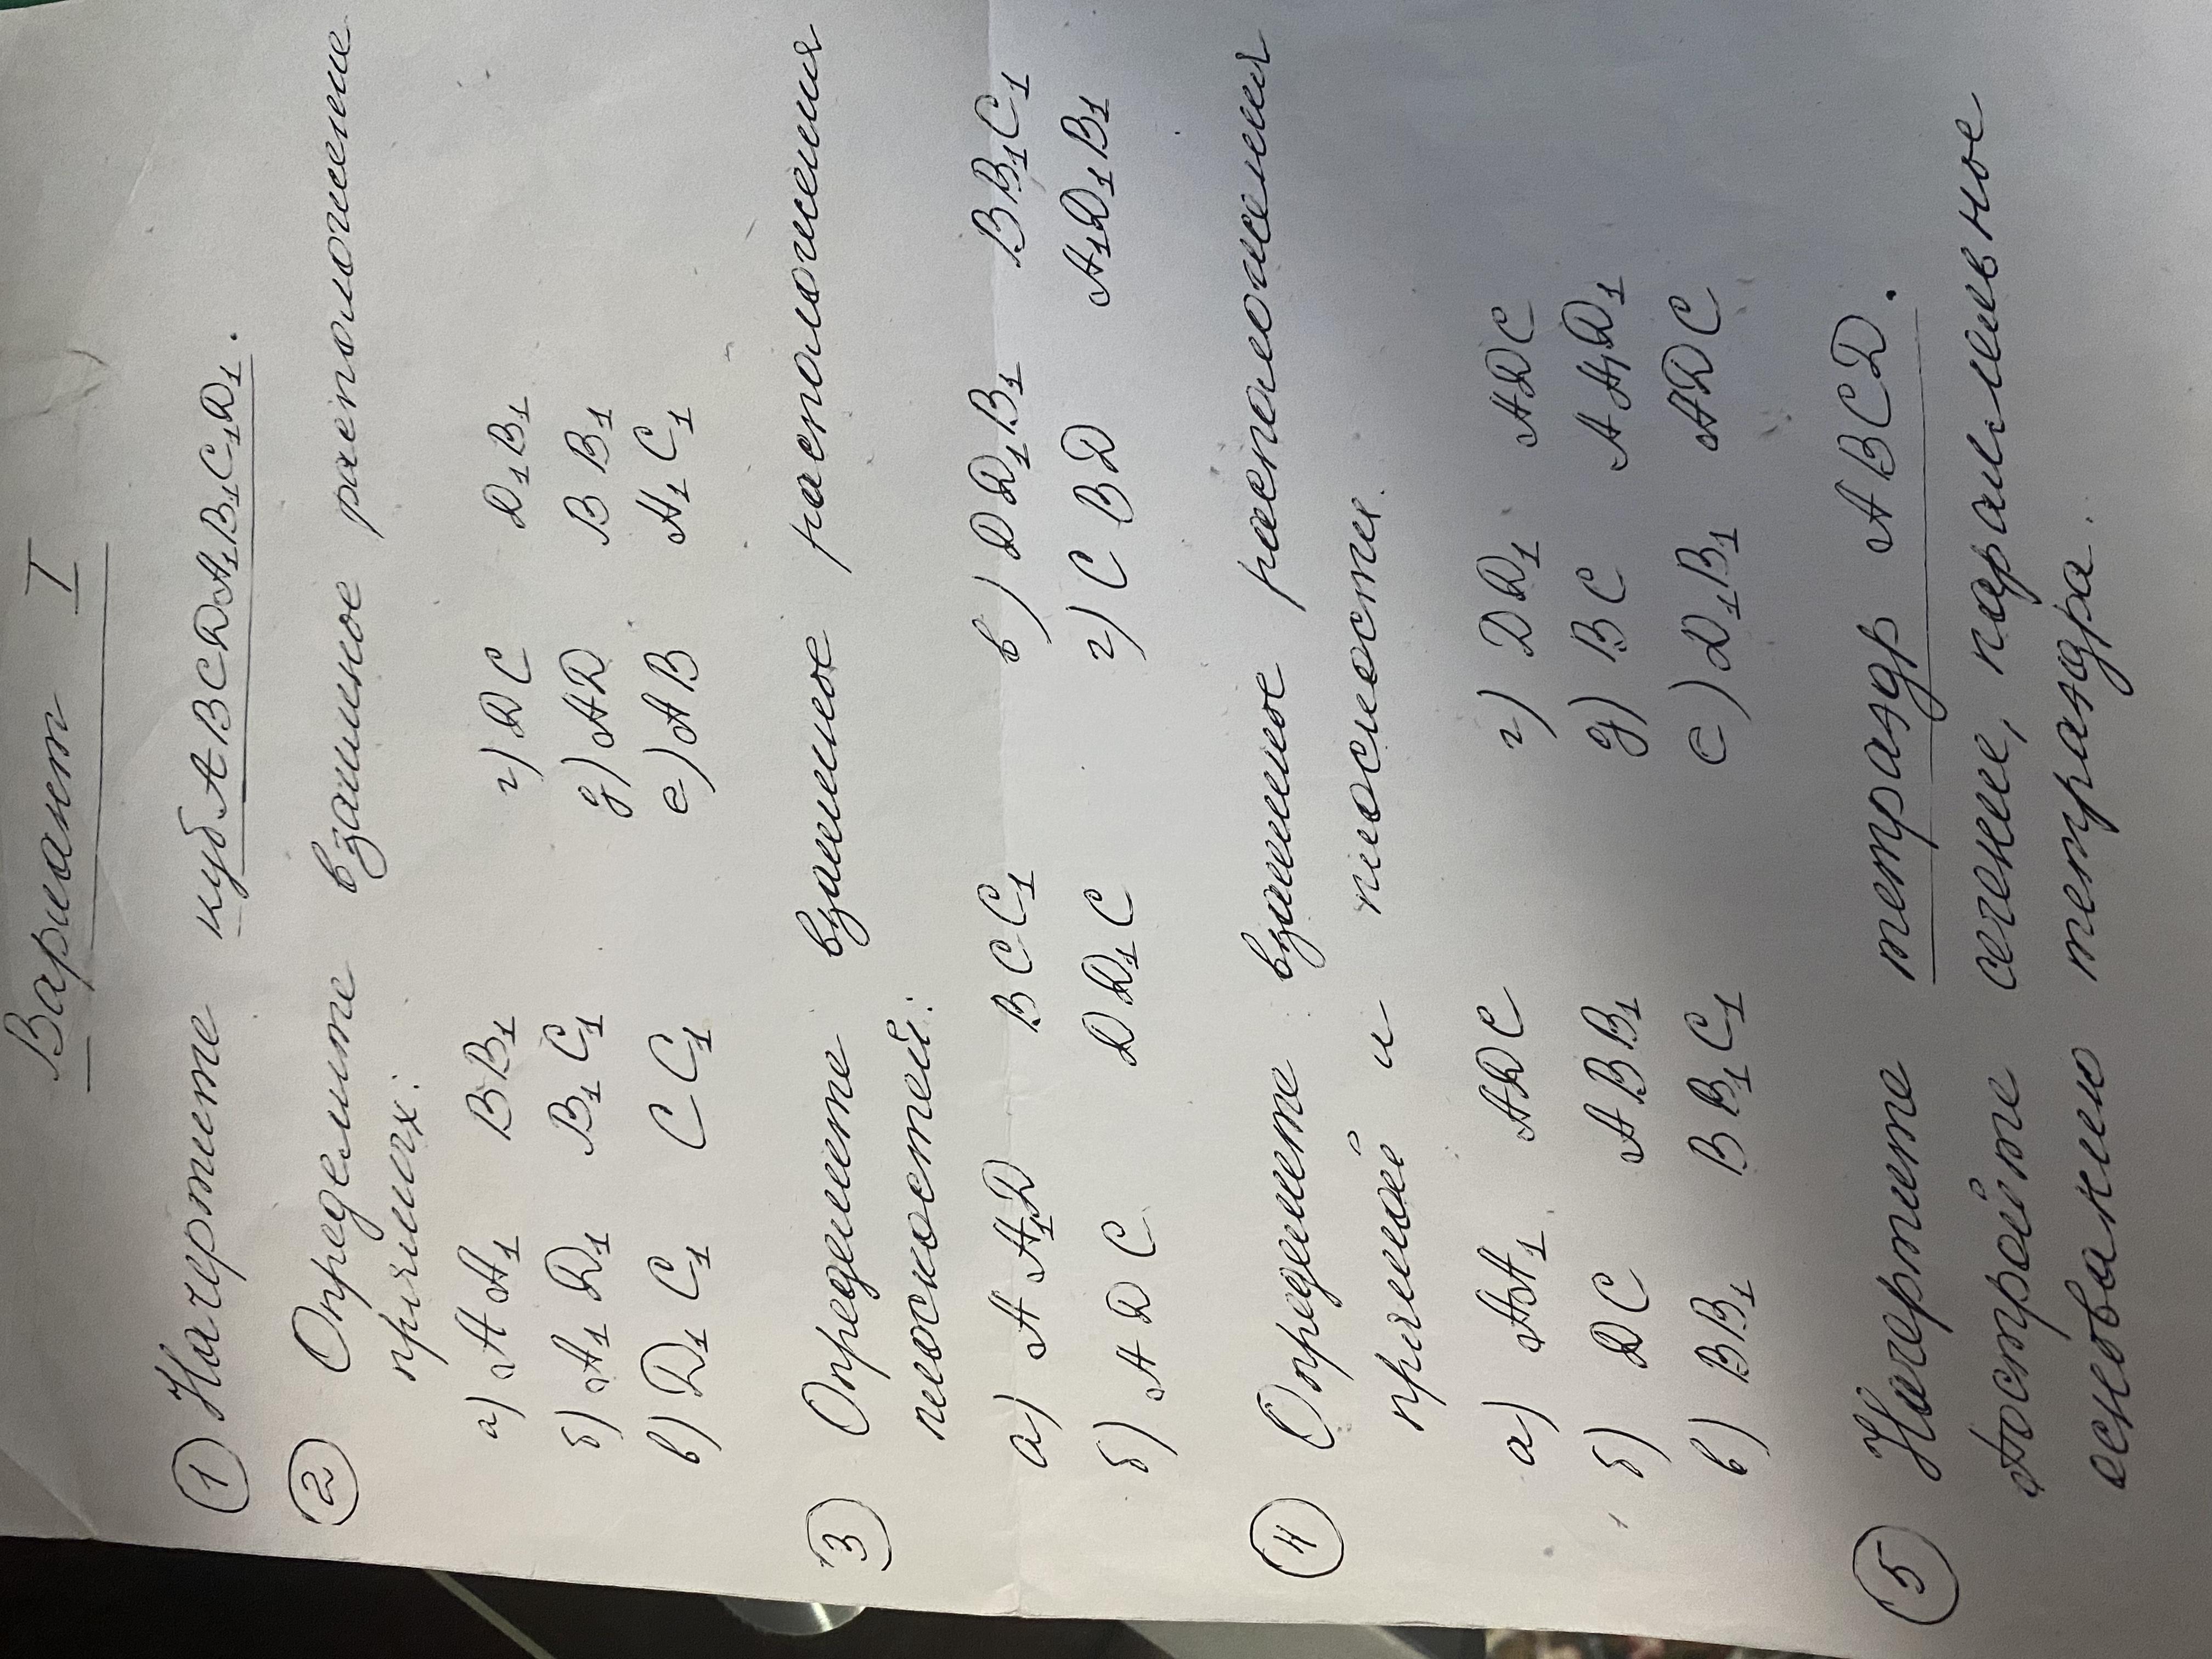 Вариант I
① Начертите куб ABCDA₁B₁C₁D₁.
② Определите взаимное расположение
прямых:
а) AA₁ BB₁ г) DC D₁B₁
б) A₁D₁ B₁C₁ д) AD BB₁
в) D₁C₁ CC₁ е) AB A₁C₁
③ Определите взаимное расположения
плоскостей:
а) AA₁D BCC₁ в) DD₁B₁ BB₁C₁
б) ADC DD₁C г) CBD A₁D₁B₁
④ Определите взаимные расположения
прямой и плоскости.
а) AA₁ ADC г) DD₁ ADC
б) DC ABB₁ д) BC AA₁D₁
в) BB₁ BB₁C₁ е) D₁B₁ ADC
⑤ Начертите тетраэдр ABCD.
Постройте сечение, паралельное
основанию тетраэдра.